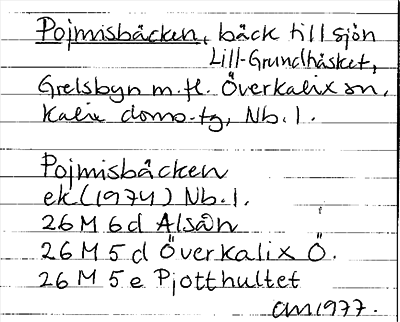 Pojmisbäcken, bäck till sjön
Lill-Grundträsket,
Grelsbyn m.fl. Överkalix sn,
Kalix doms-tg, Nb. l.
Pojmisbäcken
ek. (1974) Nb. l.
26 M 6 d Alsån
26 M 5 d Överkalix Ö.
26 M 5 e Pjotthultet
am 1977.